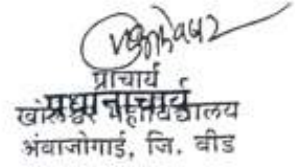 प्राचार्य
प्रधानाचार्य
खोलेश्वर महाविद्यालय
अंबाजोगाई, जि. बीड